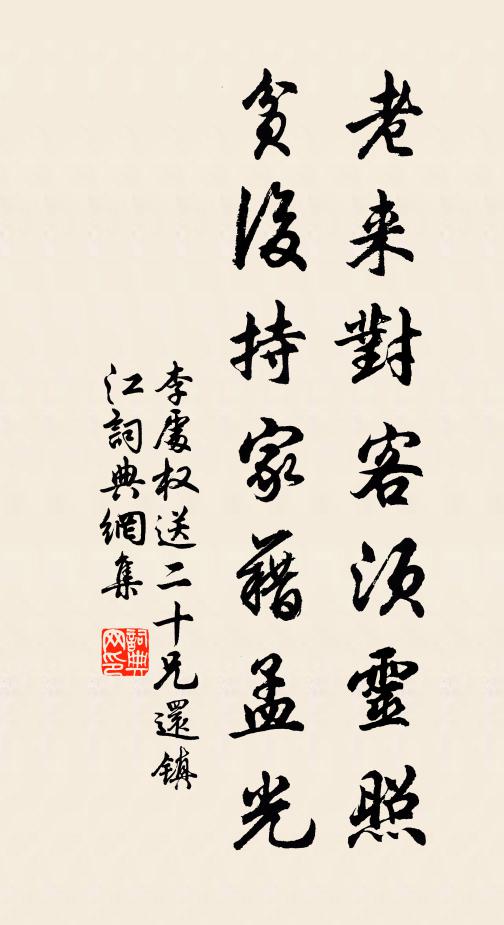 老来對客須靈照
貧後持家藉孟光
李處权送二十兄還鎮
江詞典網集
詞典网印